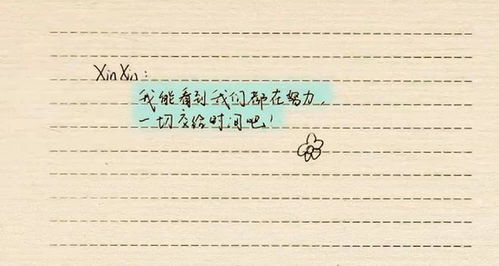 XinXin:
我能看到我们都在努力,
一切交给时间吧!